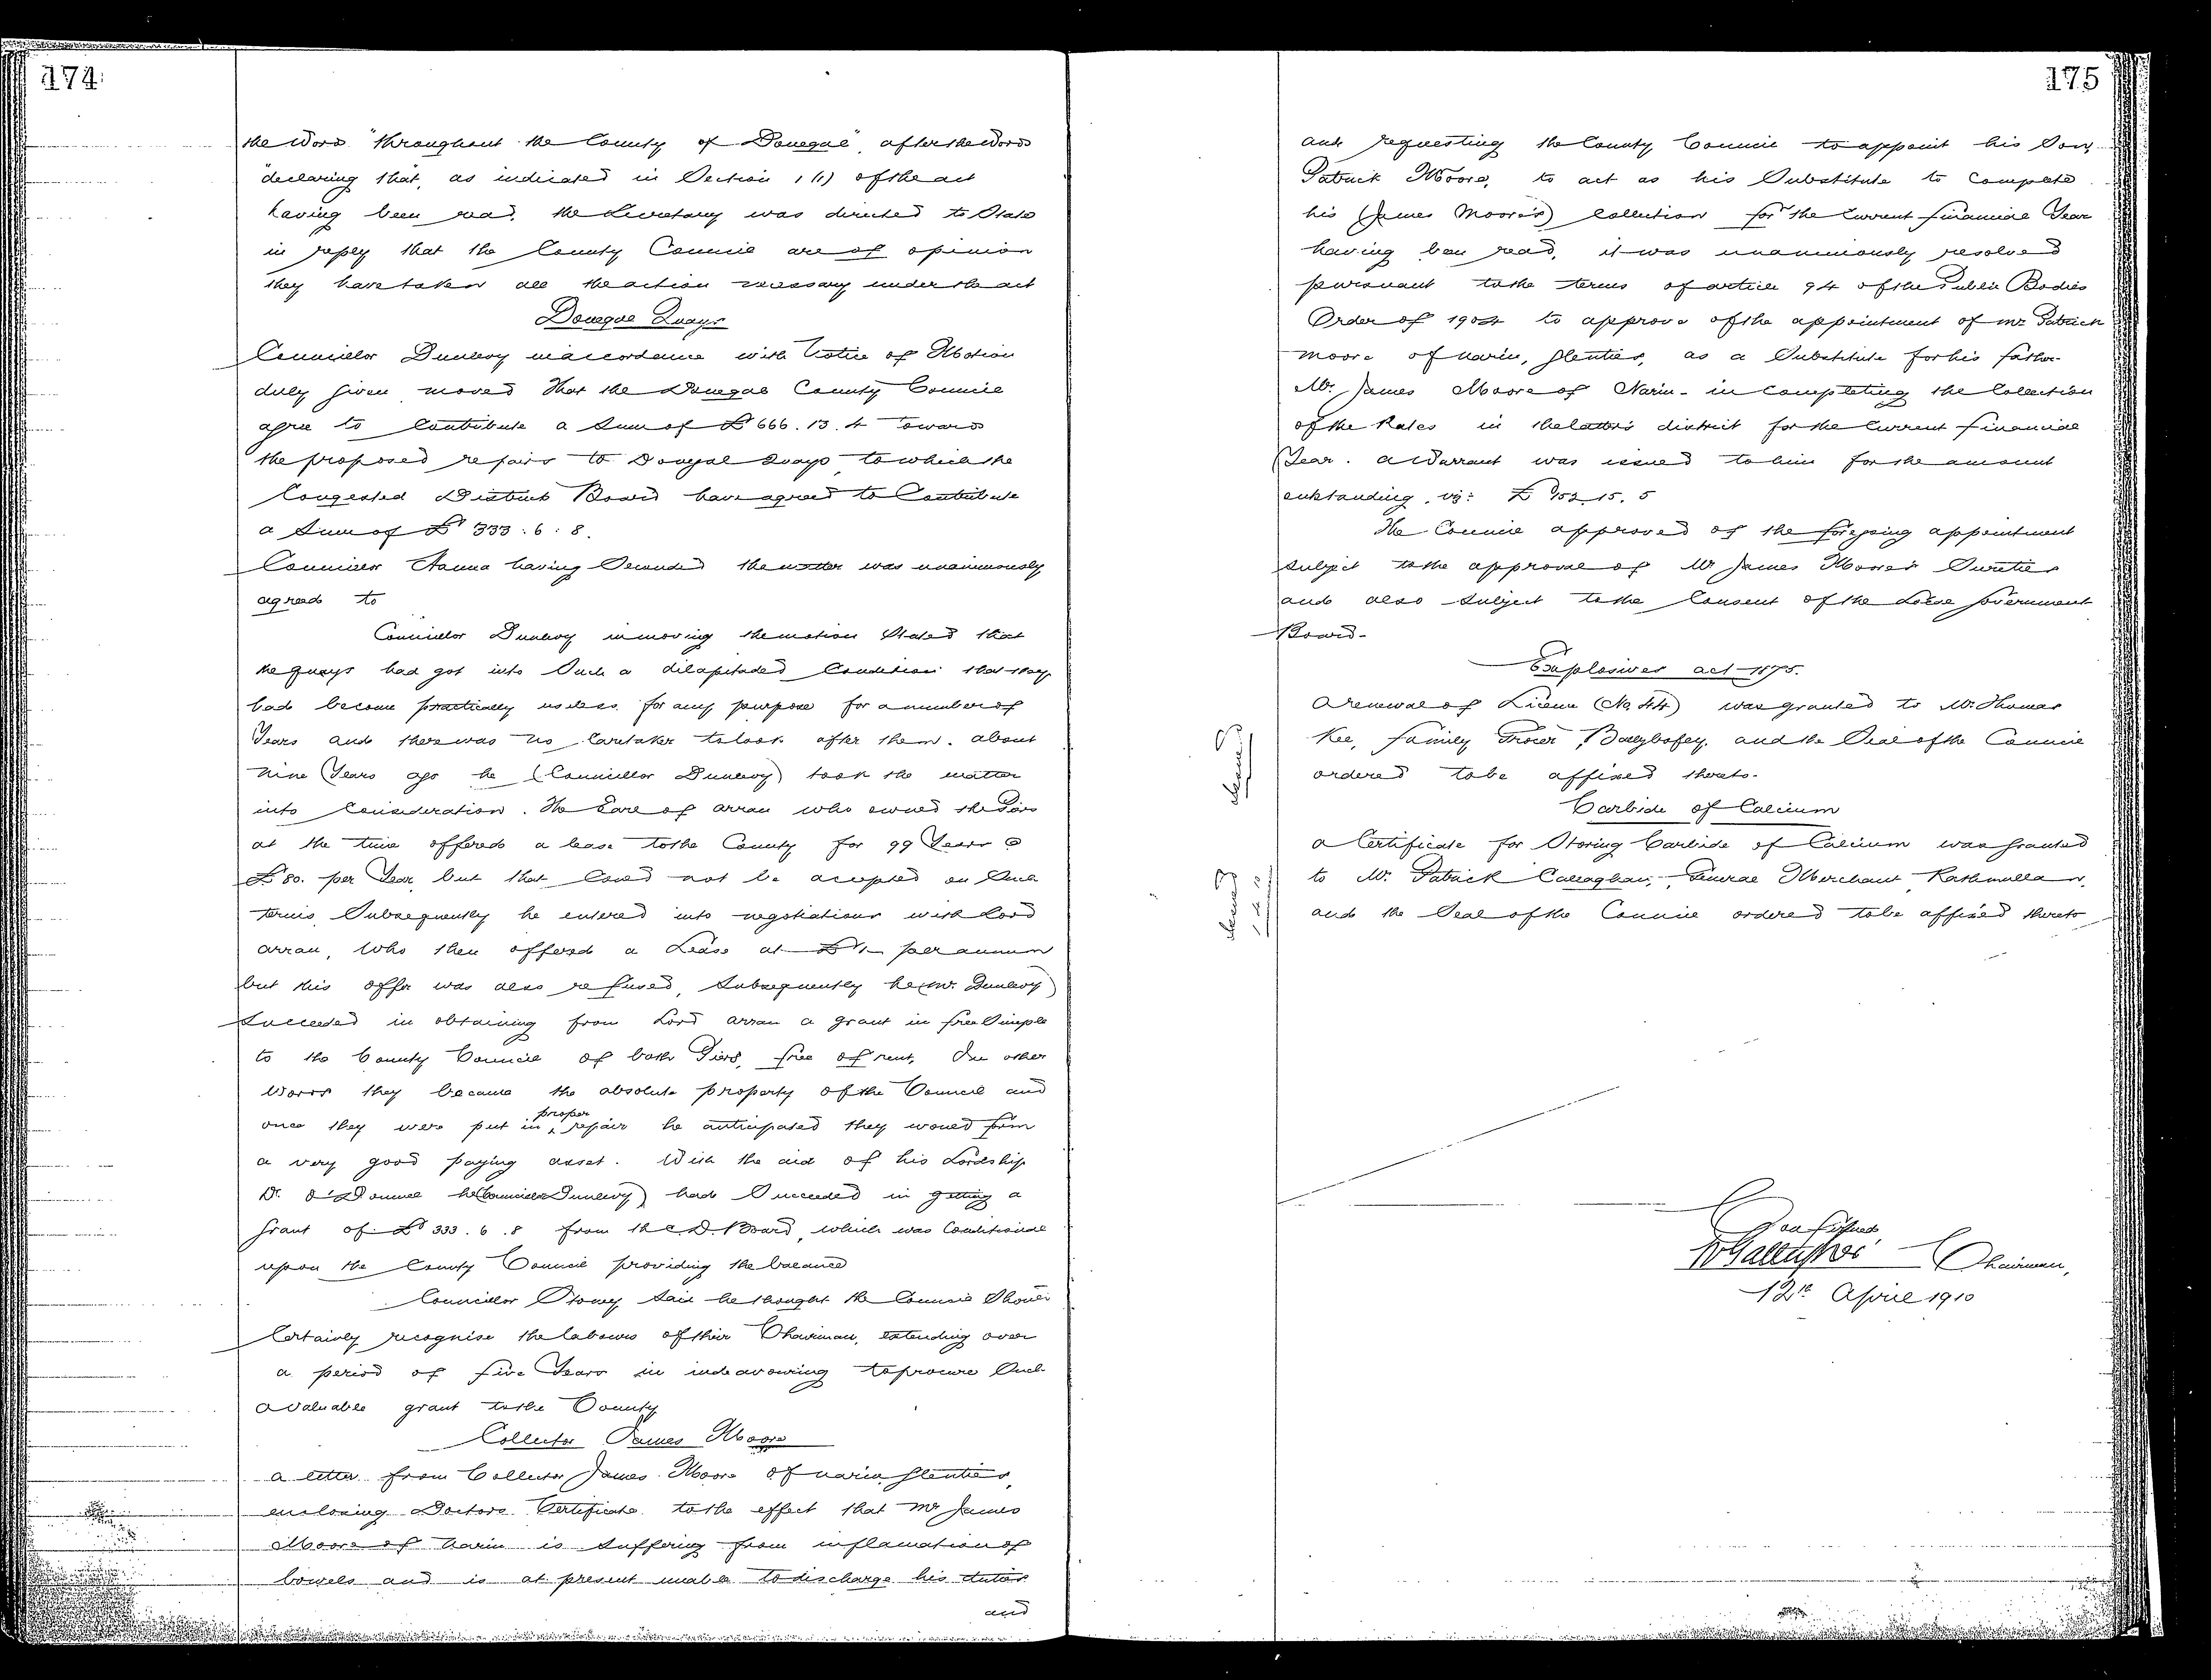 174
the Word "throughout the County of Donegal" after the Words
"declaring that, as indicated in Section 1 (1) of the act
having been read, the Secretary was directed to State
in reply that the County Council are of opinion
they have taken all the action necessary under the act
Donegal Quays
Councillor Dunlevy in accordance with Notice of Motion
duly given moved That the Donegal County Council
agree to Contribute a Sum of £666.13.4 toward
the proposed repairs to Donegal Quays to which the
Congested Districts Board have agreed to Contribute
a Sum of £333:6:8.
Councillor Hanna having Seconded the matter was unanimously
agreed to
Councillor Dunlevy in moving the motion Stated that
the quays had got into Such a dilapitaded Condition that they
had become practically useless for any purpose for a number of
Years and there was no Caretaker to look after them. about
nine Years ago he (Councillor Dunlevy) took the matter
into Consideration. The Earl of arran who owned the Piers
at the time offered a lease to the County for 99 Years @
£80. per Year but that Could not be accepted on Such
terms. Subsequently he entered into negotiations with Lord
arran, Who then offered a Lease at £1/- per annum
but this offer was also refused, Subsequently he (Mr. Dunlevy)
Succeeded in obtaining from Lord arran a grant in free Simple
to the County Council of both Piers, free of rent, In other
Words they became the absolute property of the Council and
once they were put in proper repair he anticipated they would form
a very good paying asset. With the aid of his Lordship
Dr. O'Donnell he (Councillor Dunlevy) had Succeeded in getting a
Grant of £333.6.8 from the C.D. Board, which was Conditional
upon the County Council providing the balance
Councillor Stoney Said he thought the Council Should
Certainly recognise the labours of their Chairman, extending over
a period of five Years in indeavouring to procure Such
a valuable grant to the County
Collector James Moore
a letter from Collector James Moore of Narin Glenties,
enclosing Doctors Certificate to the effect that Mr James
Moore of Narin is Suffering from inflamation of
bowels and is at present unable to discharge his duties
and
175
and requesting the County Council to appoint his Son,
Patrick Moore, to act as his Substitute to Complete
his (James Moore's) Collection for the Current financial Year
having been read, it was unanimously resolved
pursuant to the terms of article 94 of the Public Bodies
Order of 1904 to approve of the appointment of Mr Patrick
Moore of Narin, Glenties, as a Substitute for his father
Mr. James Moore of Narin - in Completing the Collection
of the Rates in the latter's district for the Current financial
Year. a Warrant was issued to him for the amount
outstanding, viz: £152.15.5
The Council approved of the foregoing appointment
Subject to the approval of Mr James Moore's Sureties
and also Subject to the Consent of the Local Government
Board -
Explosives act 1875.
a renewal of Licence (No. 44) was granted to Mr. Thomas
Kee, Family Grocer, Ballybofey. and the Seal of the Council
ordered to be affixed thereto.
Issued
Carbide of Calcium
a Certificate for Storing Carbide of Calcium was Granted
to Mr. Patrick Callaghan, General Merchant, Rathmullan,
and the Seal of the Council ordered to be affixed thereto
Issued
Confirmed
Chairman,
12th April 1910